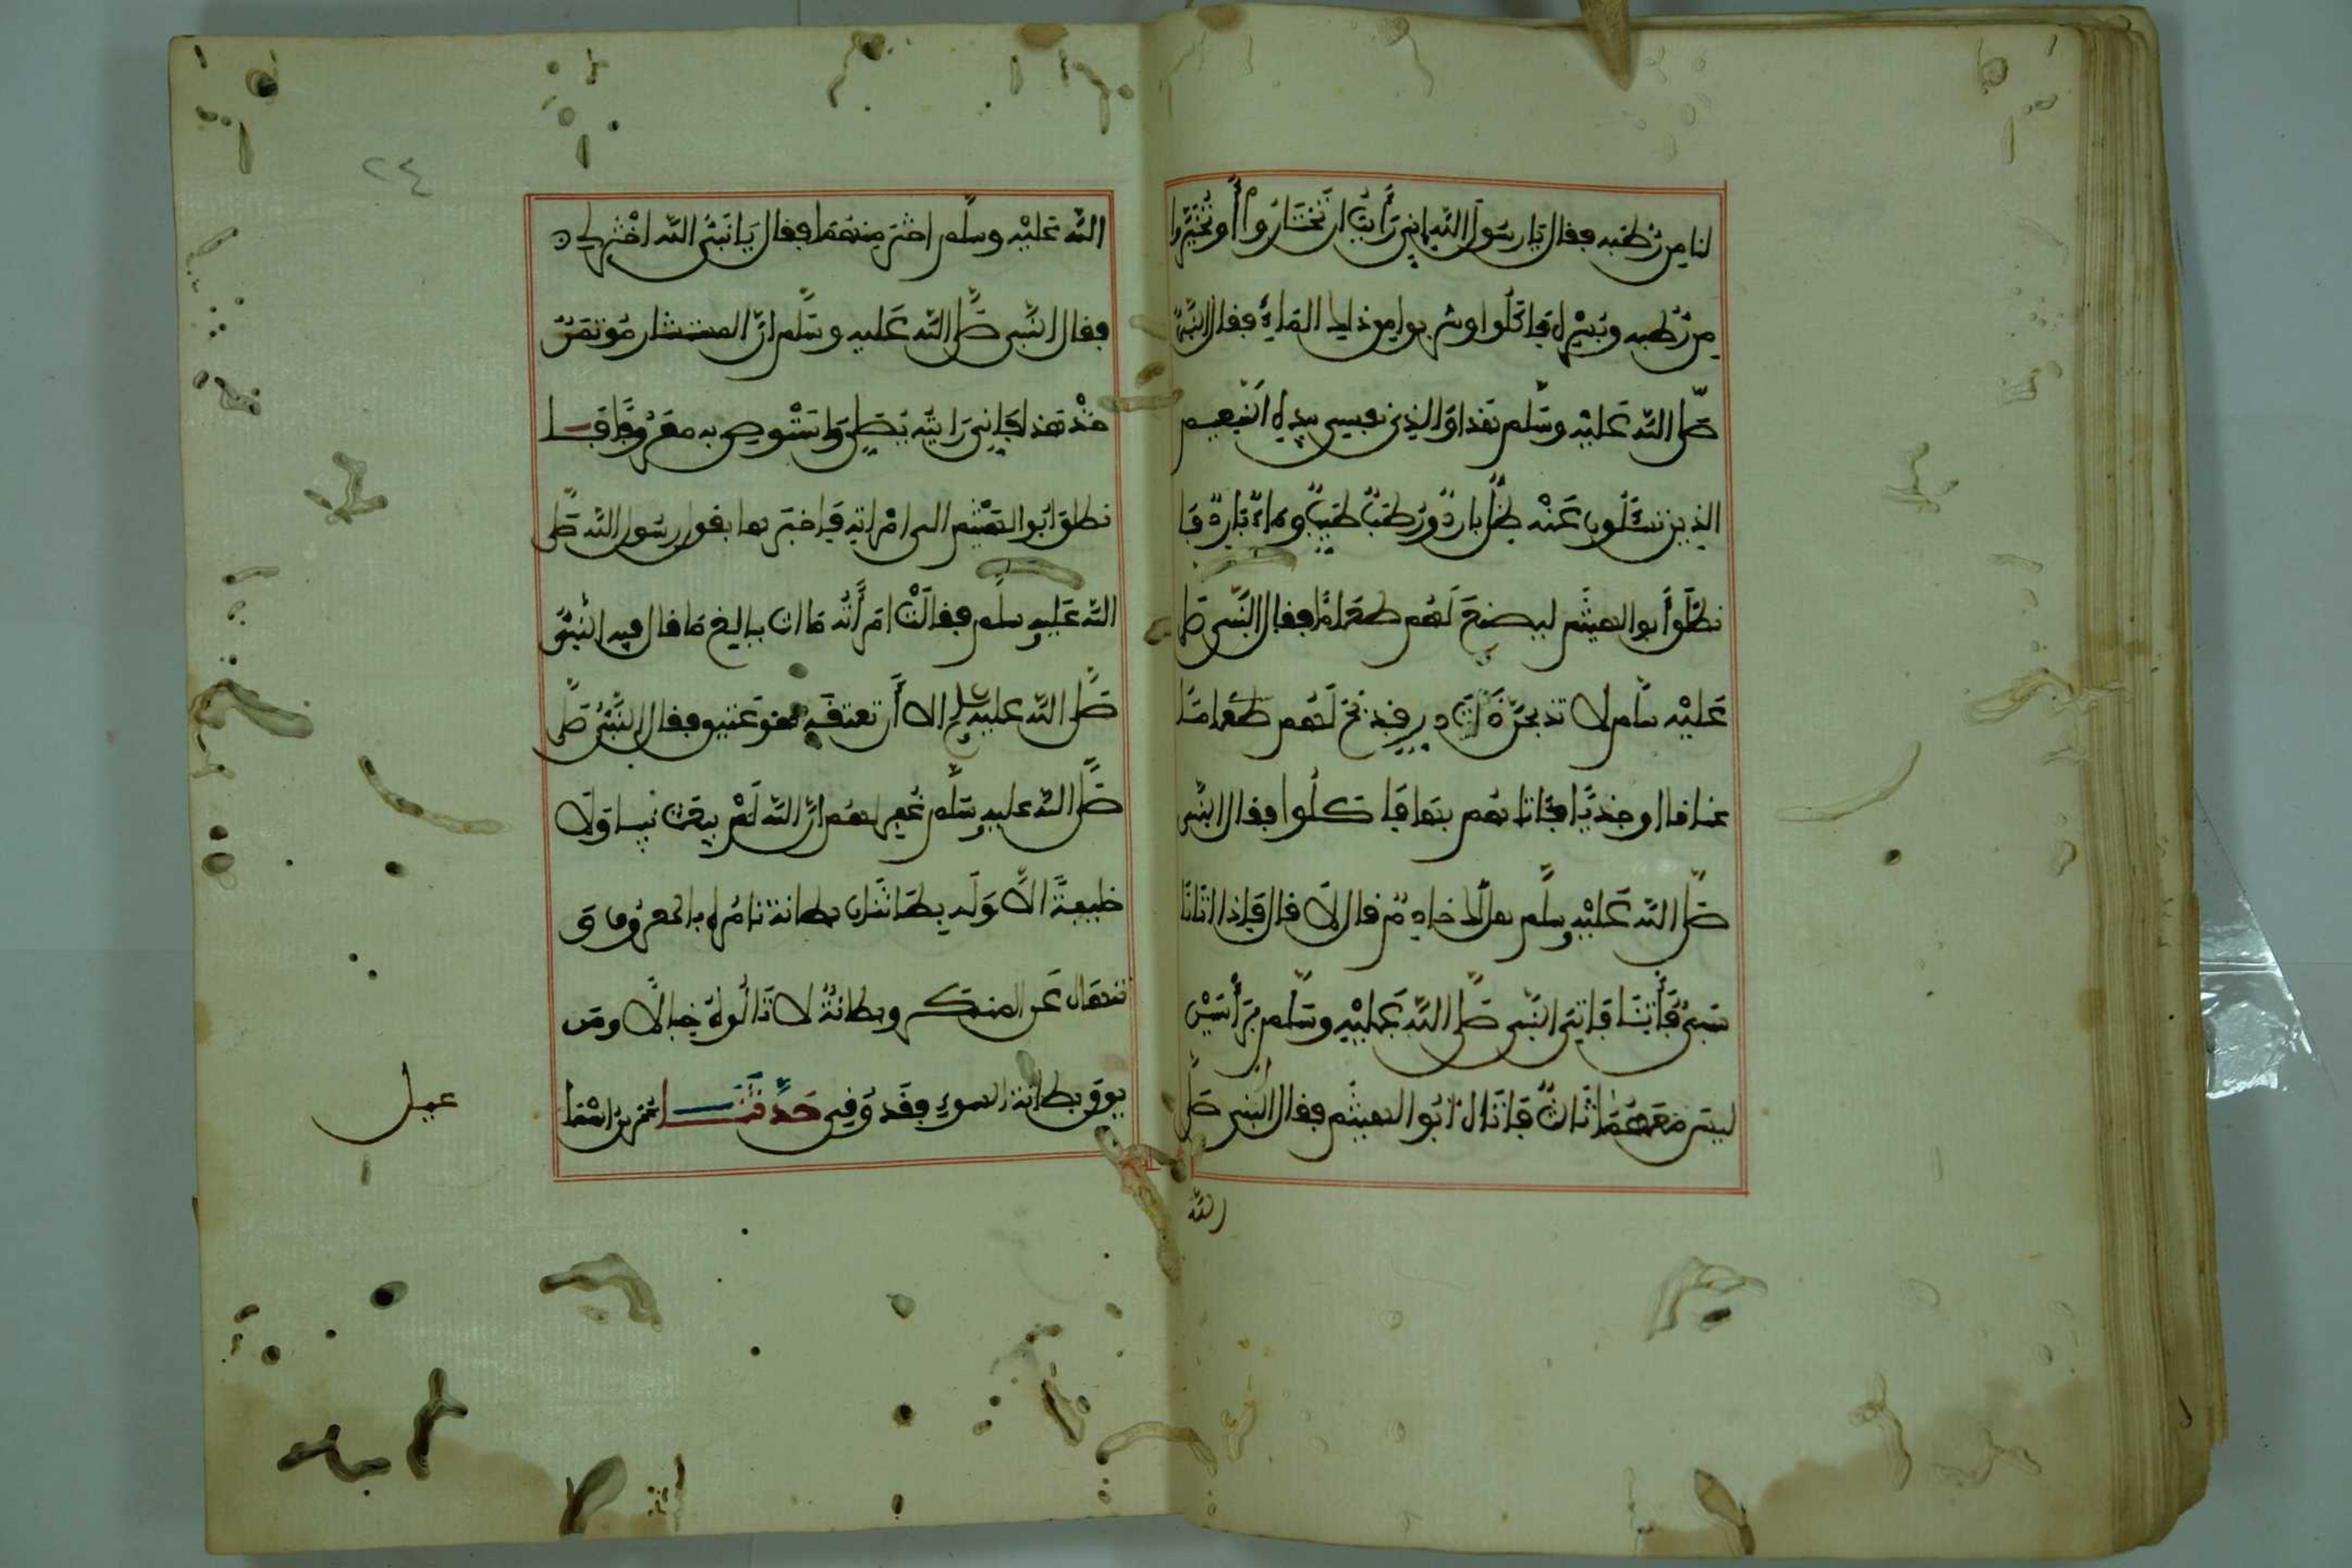 لنا من رطبه فقال يا رسول الله اني رأيت ان تختاروا أو تخيروا
من رطبه وبسره فاكلوا وشربوا من ذلك الماء فقال النبي
صلى الله عليه وسلم هذا والذي نفسي بيده النعيم
الذي تسئلون عنه ظل بارد ورطب طيب وماء بارد فا
نطلق أبو الهيثم ليصنع لهم طعاما فقال النبي صلى
عليه سلم لا تذبحن ذات در فذبح لهم طعاما
عناقا او جديا فاتاهم بها فاكلوا فقال النبي
صلى الله عليه وسلم هل لك خادم قال لا قال فإذا اتانا
سبي فأتنا فاتي النبي صلى الله عليه وسلم برأسين
ليس معهما ثالث فاتاه أبو الهيثم فقال النبي صلى
الله
٢٤
الله عليه وسلم اختر منهما فقال يا نبي الله اختر لي
فقال النبي صلى الله عليه وسلم ان المستشار مؤتمن
خذ هذا فإني رايته يصلي واستوص به معروفا فا
نطلق ابو الهيثم الى امراته فاخبرها بقول رسول الله صلى
الله عليه وسلم فقالت امرأته ما انت ببالغ ما قال فيه النبي
صلى الله عليه وسلم الا أن تعتقه فهو عتيق فقال النبي صلى
صلى الله عليه وسلم ان الله لم يبعث نبيا ولا
خليفة الا وله بطانتان بطانة تامره بالمعروف و
تنهاه عن المنكر وبطانة لا تالوه خبالا ومن
يوق بطانة السوء فقد وقي حدثنا عمر بن اسما
عيل